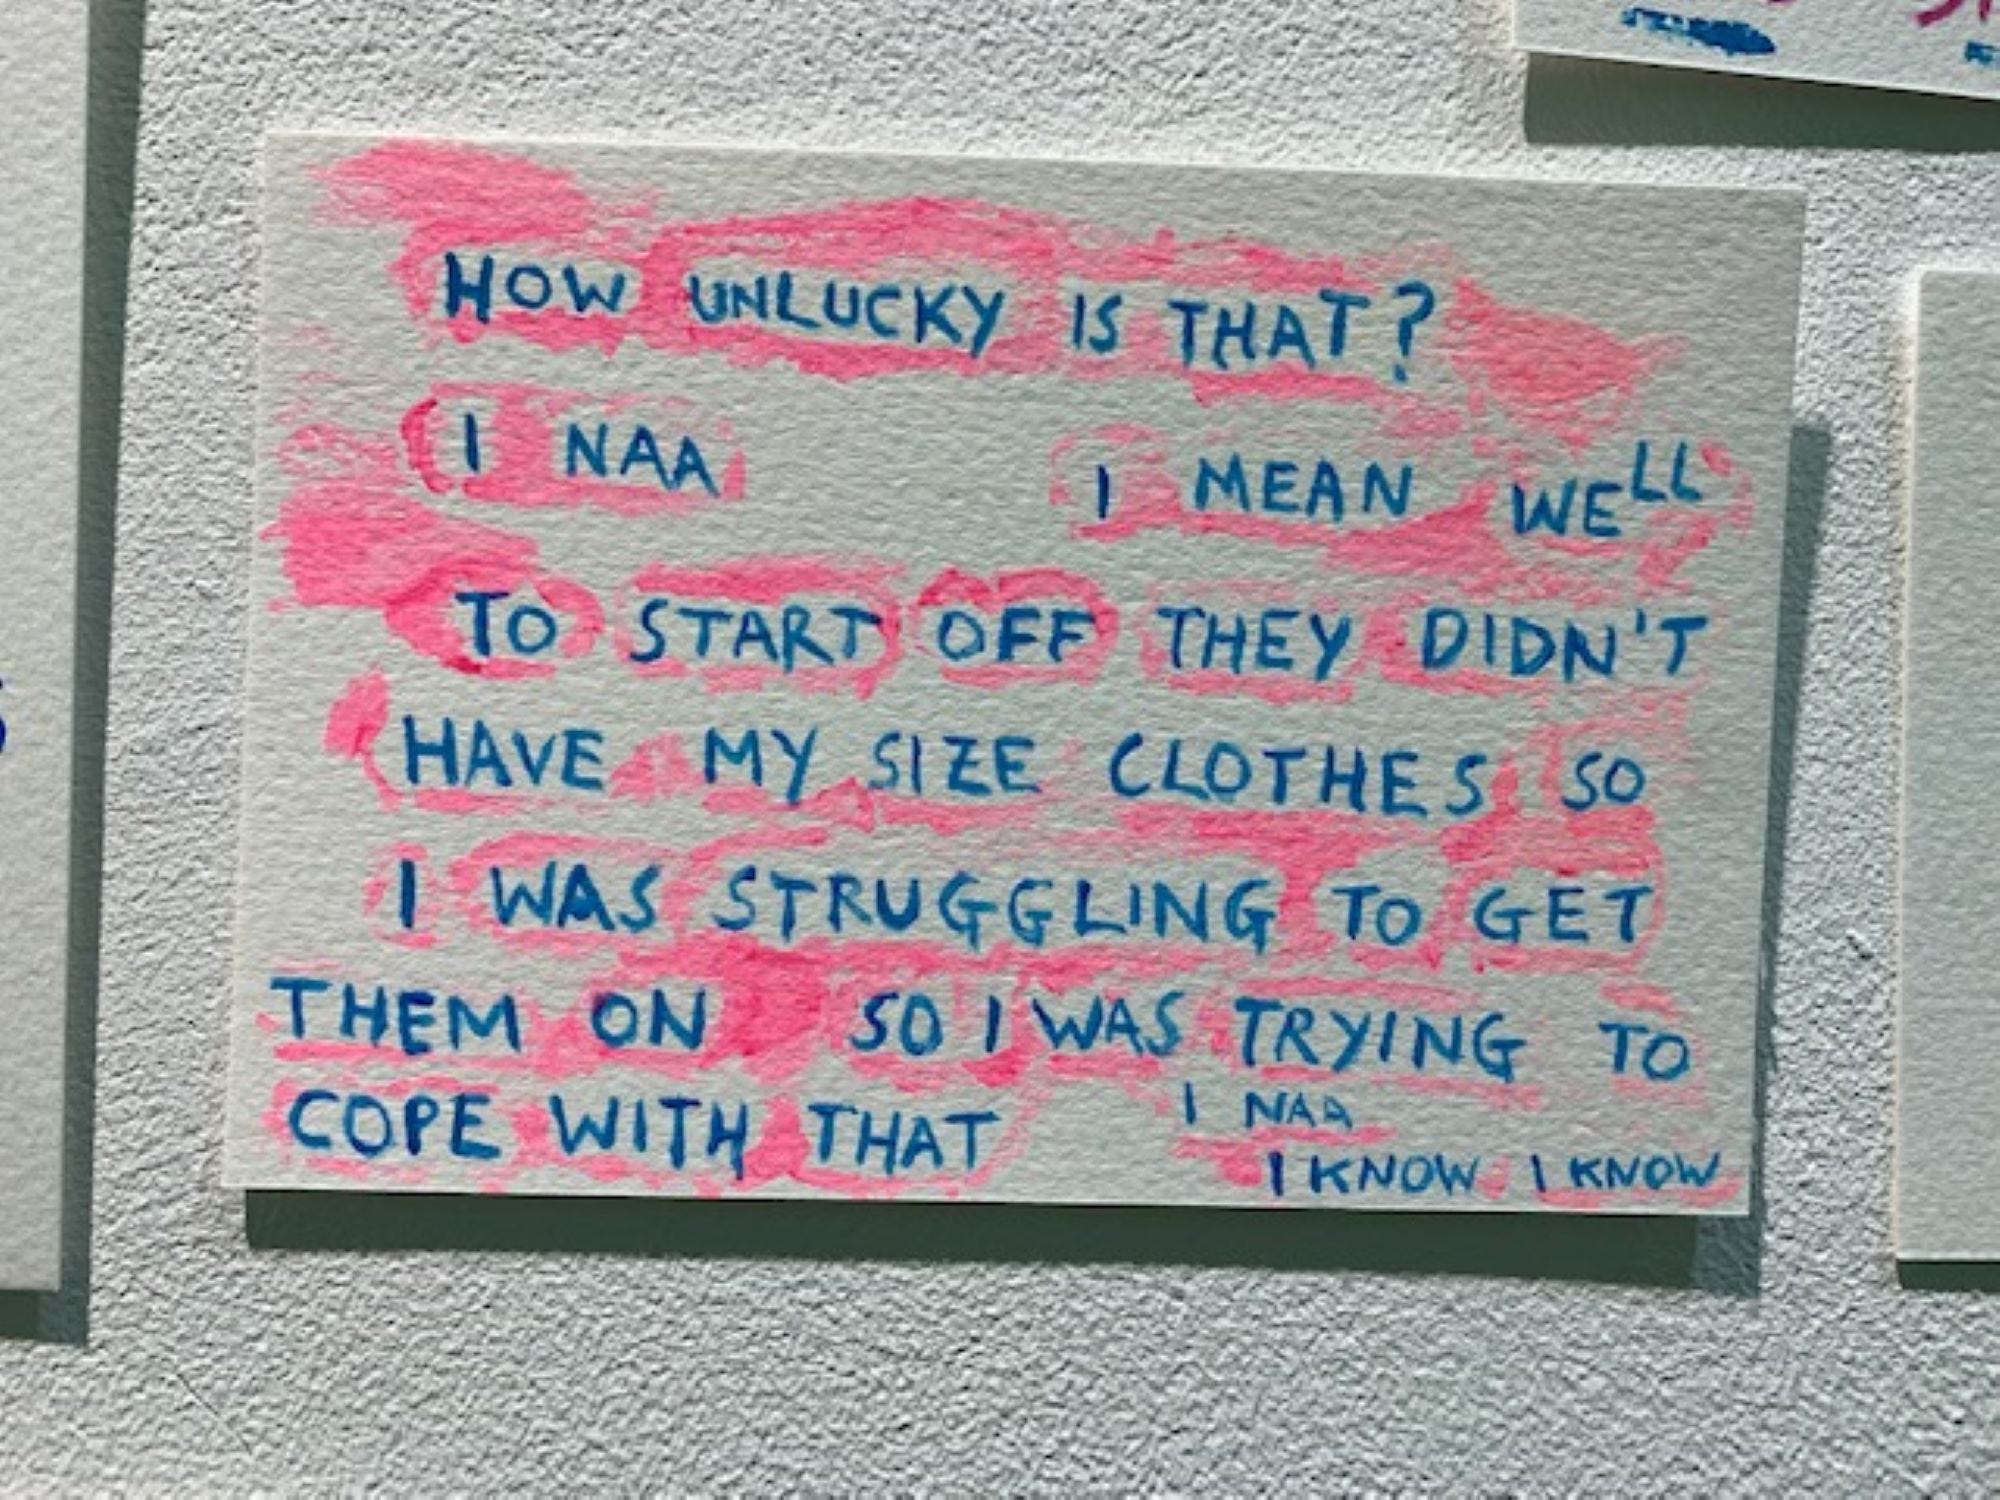 HOW UNLUCKY IS THAT?
I NAA I MEAN WELL
TO START OFF THEY DIDN'T
HAVE MY SIZE CLOTHES SO
I WAS STRUGGLING TO GET
THEM ON SO I WAS TRYING TO
COPE WITH THAT I NAA
I KNOW I KNOW